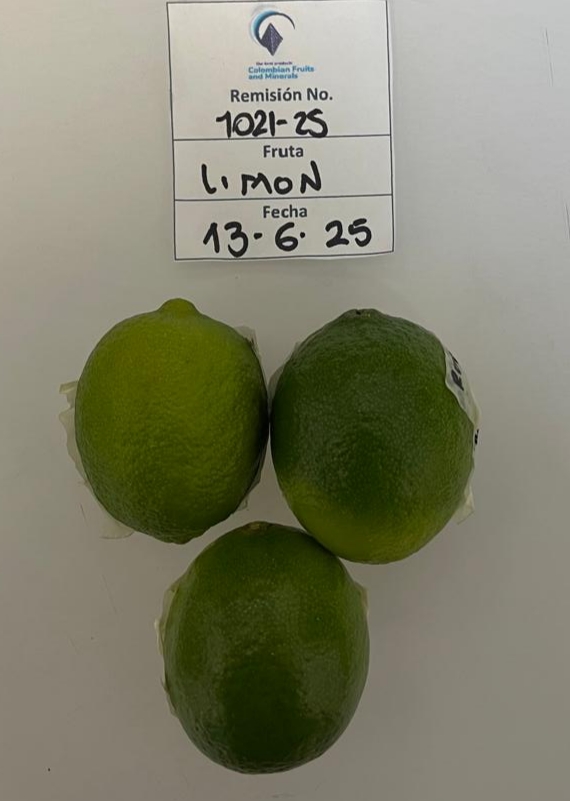 Colombian Fruits
and Minerals
Remisión No.
1021-25
Fruta
LiMON
Fecha
13-6-25